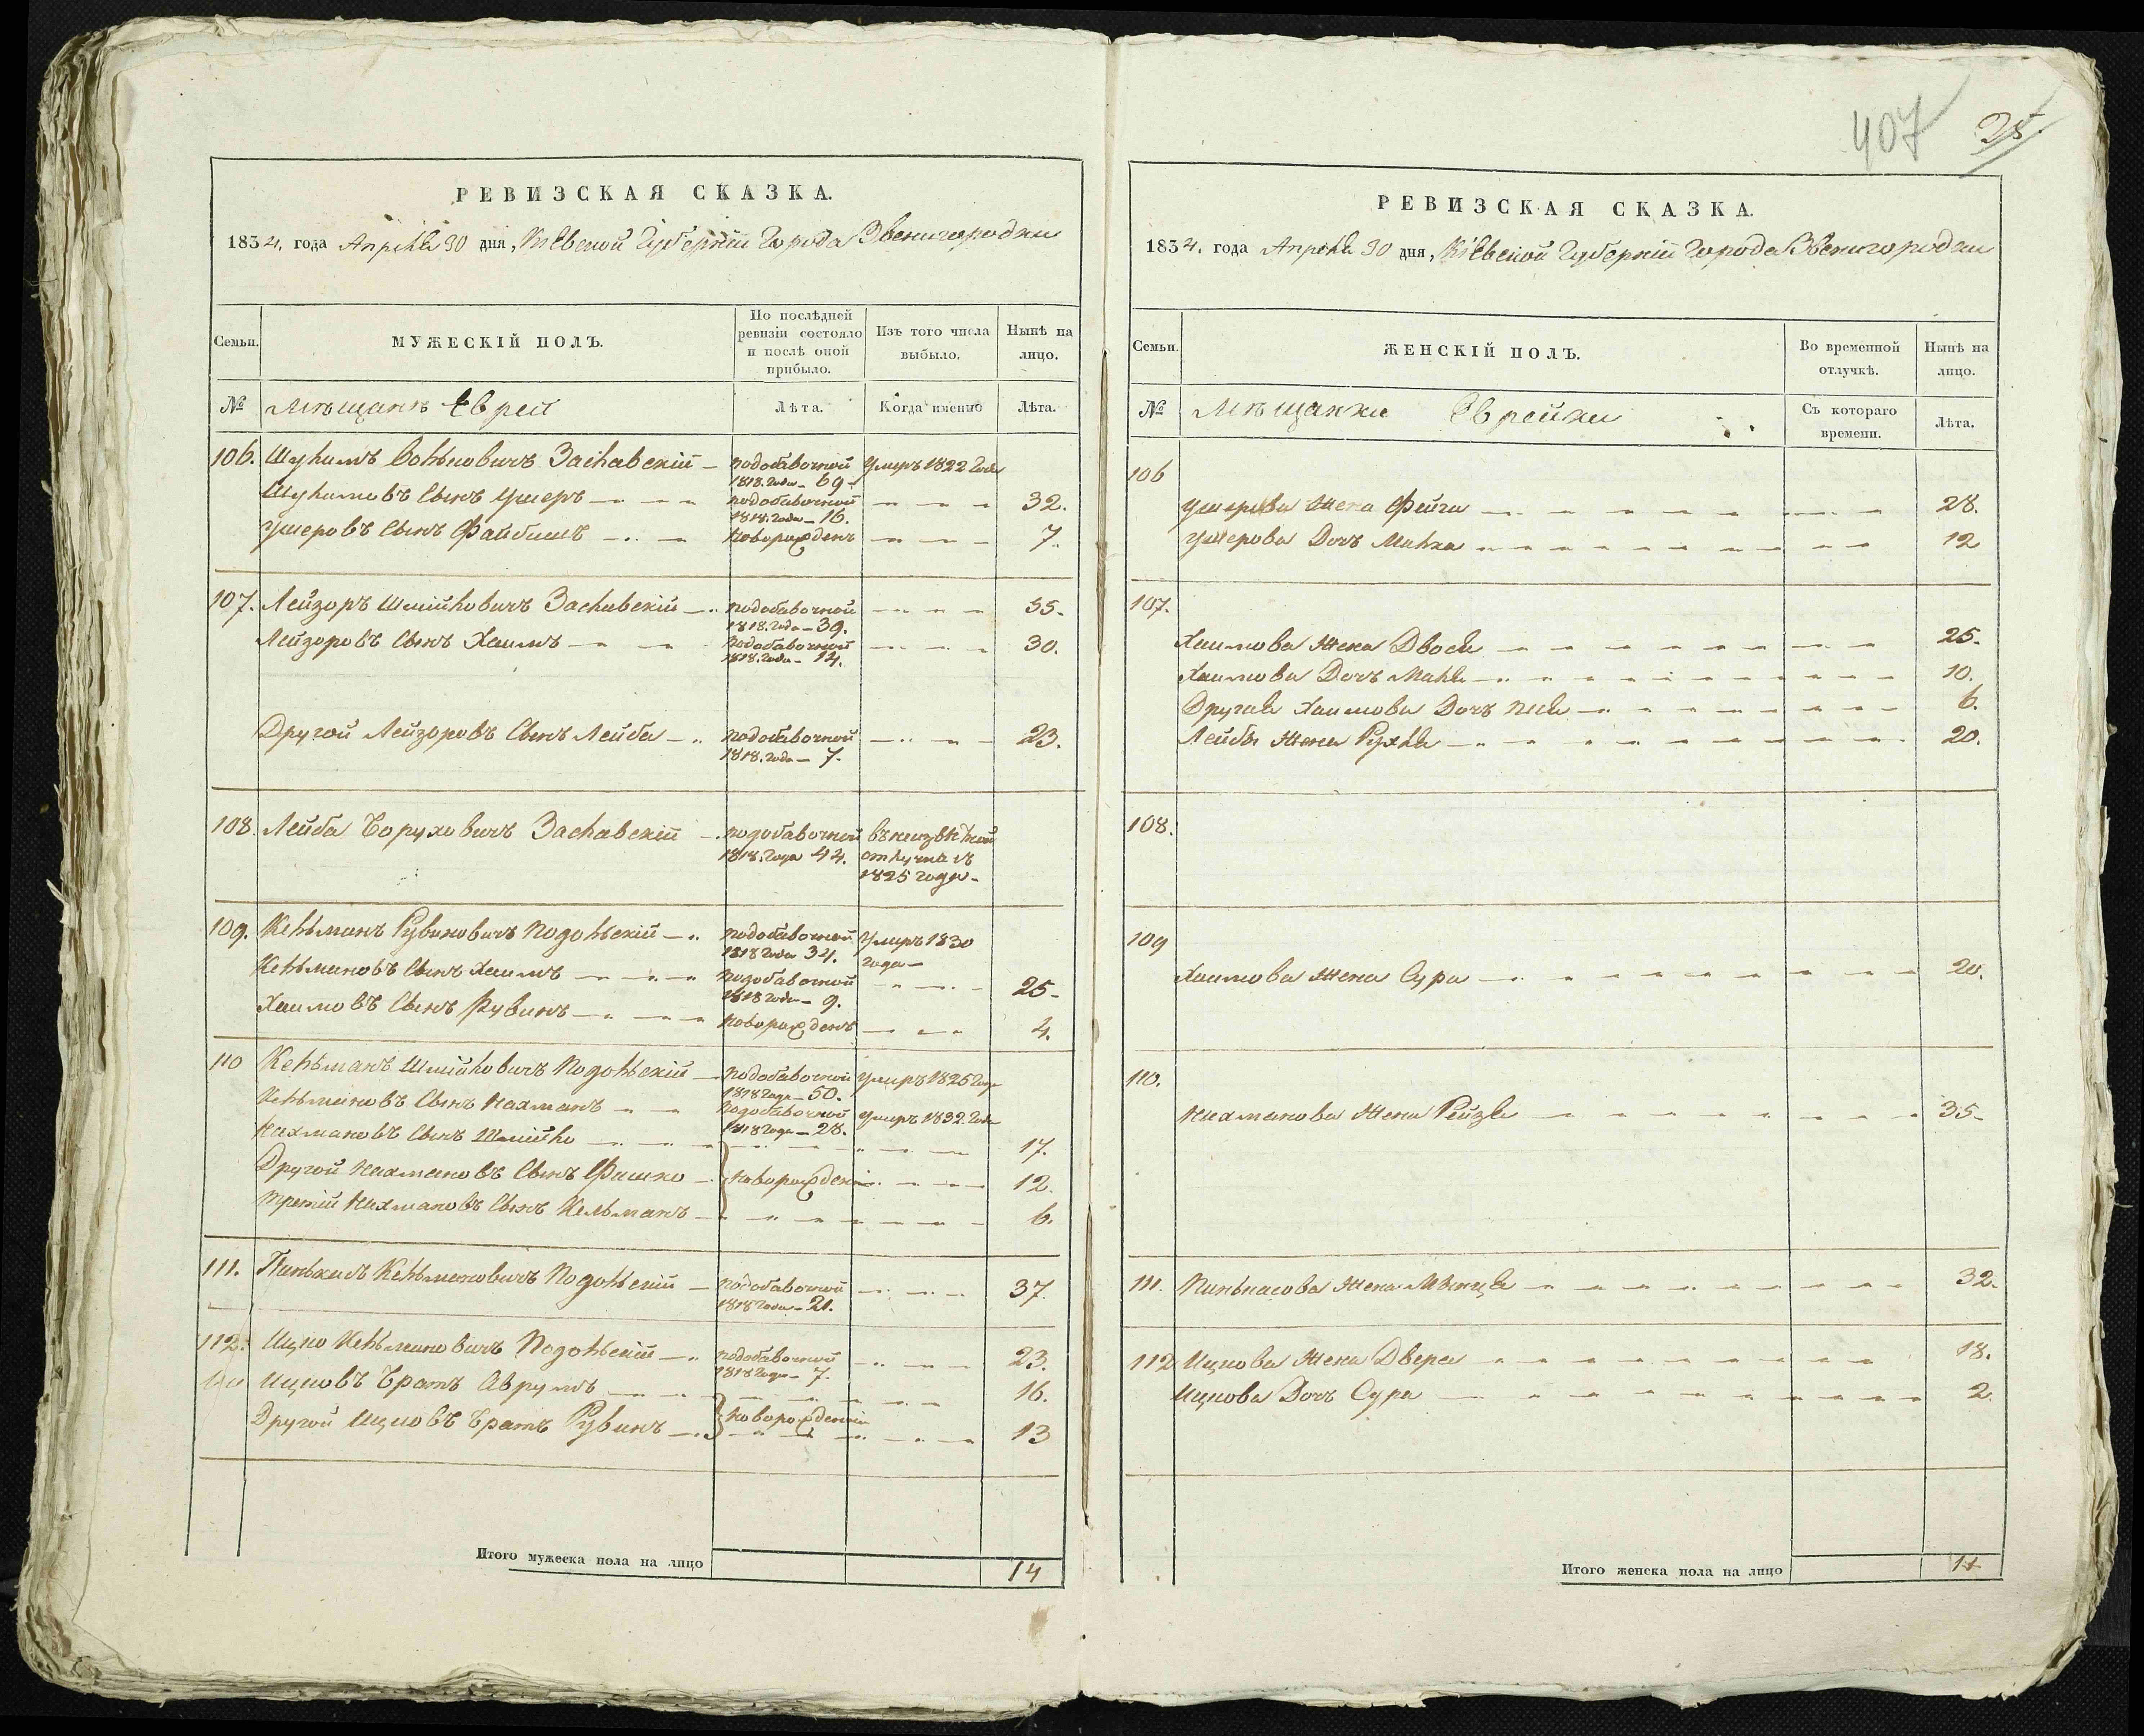 407 25.
РЕВИЗСКАЯ СКАЗКА.
1834. года Апреля 30 дня, Кіевской Губерніи Города Звенигородки
Семьи. МУЖЕСКІЙ ПОЛЪ. По послѣдней ревизіи состояло и послѣ оной прибыло. Изъ того числа выбыло. Нынѣ на лицо.
№ Мѣщанъ Еврей Лѣта. Когда именно Лѣта.
106. Заславскій — подобавочной 1818. года — 69 — Умиръ 1822 года
сынъ Ушеръ — подобавочной 1818. года — 16. 32.
Ушеровъ сынъ Файбишъ — новорожденъ 7.
107. Лейзоръ Шмійловичъ Заславскій — подобавочной 1818. года — 39. 55.
Лейзоровъ сынъ Хаимъ — подобавочной 1818. года — 14. 30.
Другой Лейзоровъ сынъ Лейба — подобавочной 1818. года — 7. 23.
108. Лейба Боруховичъ Заславскій — подобавочной 1818. года 44. въ неизвѣстной отлучкѣ съ 1825 года —
109. Кельманъ Рувиновичъ Подольскій — подобавочной 1818 года 34. Умиръ 1830 года —
Кельмановъ сынъ Хаимъ — подобавочной 1818 года — 9. 25 —
Хаимовъ сынъ Рувинъ — новорожденъ 4.
110 Кельманъ Шмійловичъ Подольскій — подобавочной 1818 года — 50. Умиръ 1825 года
Кельмановъ сынъ Нахманъ — подобавочной 1818 года — 28. Умиръ 1832 года
Нахмановъ сынъ Шмійло — 17.
Другой Нахмановъ сынъ Фишко — новорождени 12.
третій Нахмановъ сынъ Кельманъ — 6.
111. Пинькасъ Кельмановичъ Подольскій — подобавочной 1818 года — 21. 37.
112. Ицко Кельмановичъ Подольскій — подобавочной 1818 года — 7. 23.
Ицковъ Братъ Аврумъ — 16.
Другой Ицковъ Братъ Рувинъ — новорожденіи 13
Итого мужеска пола на лицо 14
РЕВИЗСКАЯ СКАЗКА.
1834. года Апреля 30 дня, Кіевской Губерніи Города Звенигородки
Семьи. ЖЕНСКІЙ ПОЛЪ. Во временной отлучкѣ. Нынѣ на лицо.
№ Мѣщанки Еврейки Съ котораго времени. Лѣта.
106
Ушерова Жена Фейга — 28.
Ушерова Дочь Малка — 12
107.
Хаимова Жена Двося — 25 —
Хаимова Дочь — 10.
Другая Хаимова Дочь — 6.
Лейбы Жена Рухля — 20.
108.
109
Хаимова Жена Сура — 20.
110.
Нахманова Жена Рейзя — 35 —
111. Пинькасова Жена — 32.
112 Ицкова Жена Двера — 18.
Ицкова Дочь Сура — 2.
Итого женска пола на лицо 11